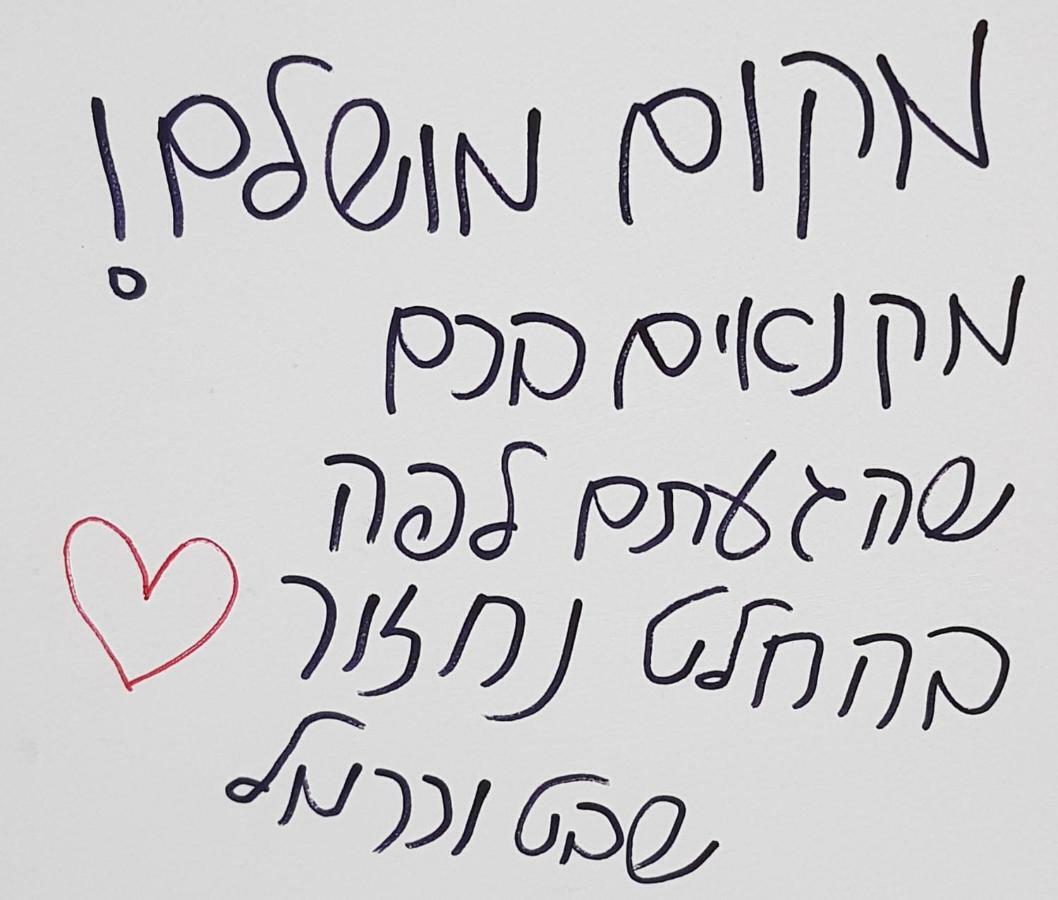 מקום מושלם!
מקנאים בכם
שהגעתם לפה
בהחלט נחזור
שבט וכרמל